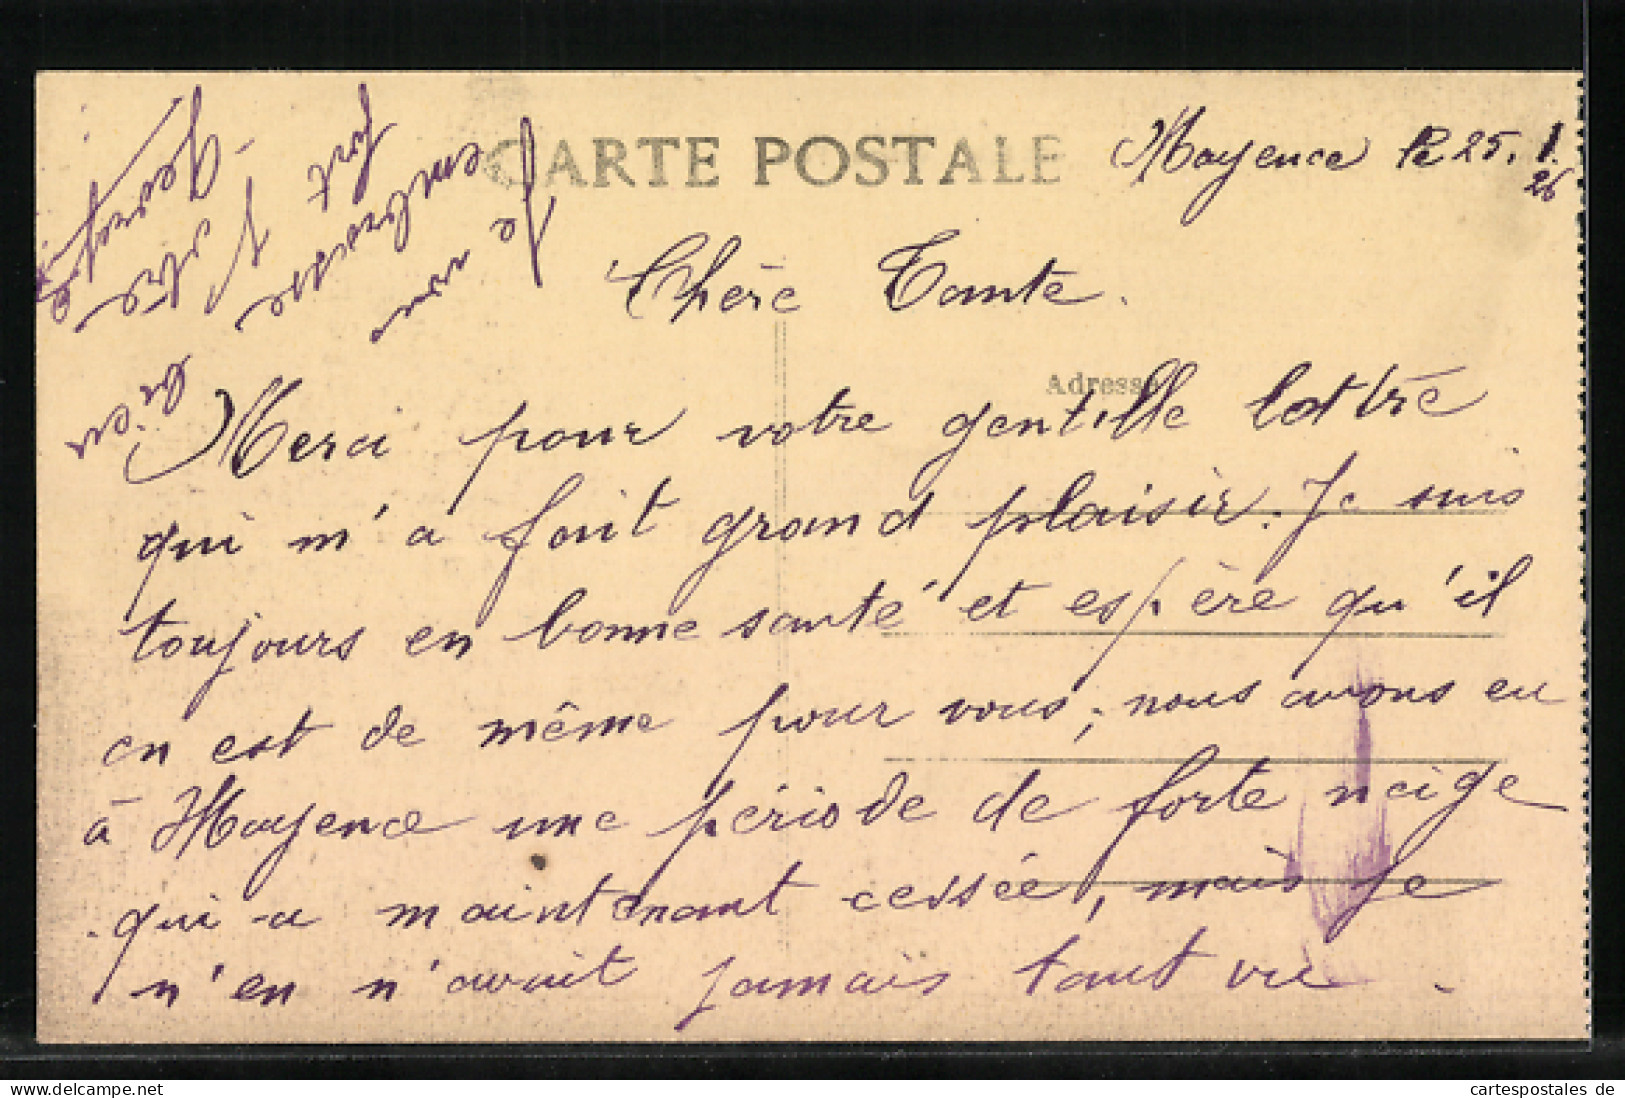 CARTE POSTALE
Mayence le 25. 1. 26
Chère Tante.
Adresse
Merci pour votre gentille lettre
qui m'a fait grand plaisir. Je suis
toujours en bonne santé et espère qu'il
en est de même pour vous; nous avons eu
à Mayence une période de forte neige
qui a maintenant cessée, mais je
n'en n'avait jamais tant vu.
Je vous
embrasse bien
fort
Georges
cartespostales de